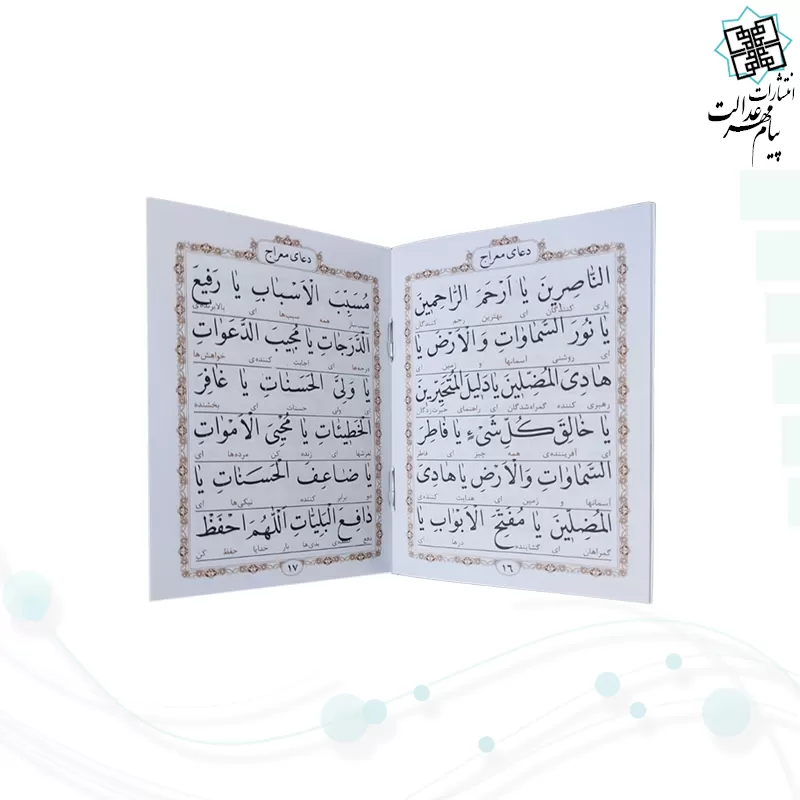 انتشارات
پیام مهر عدالت
دعای معراج
النَّاصِرِینَ یَا اَرْحَمَ الرَّاحِمِینَ
یاری کنندگان ای بهترین رحم کنندگان
یَا نُورَ السَّمَاوَاتِ وَالْاَرْضِ یَا
ای روشنی آسمانها و زمین ای
هَادِیَ الْمُضِلِّینَ یَا دَلِیلَ الْمُتَحَیِّرِینَ
رهبری کننده گمراه‌شدگان ای راهنمای حیرت‌زدگان
یَا خَالِقَ کُلِّ شَیْءٍ یَا فَاطِرَ
ای آفریننده‌ی همه چیز ای فاطر
السَّمَاوَاتِ وَالْاَرْضِ یَا هَادِیَ
آسمانها و زمین ای هدایت کننده‌ی
الْمُضِلِّینَ یَا مُفَتِّحَ الْاَبْوَابِ یَا
گمراهان ای گشاینده درها ای
۱۶
دعای معراج
مُسَبِّبَ الْاَسْبَابِ یَا رَفِیعَ
سبب‌ساز همه سبب‌ها ای بالابرنده‌ی
الدَّرَجَاتِ یَا مُجِیبَ الدَّعَوَاتِ
درجه‌ها ای اجابت کننده‌ی خواهش‌ها
یَا وَلِیَّ الْحَسَنَاتِ یَا غَافِرَ
ای ولی حسنات ای بخشنده
الْخَطِیئَاتِ یَا مُحْیِیَ الْاَمْوَاتِ
لغزشها ای زنده کن مرده‌ها ای
یَا ضَاعِفَ الْحَسَنَاتِ یَا
دو برابر کننده نیکی‌ها ای
دَافِعَ الْبَلِیَّاتِ اَللّٰهُمَّ احْفَظْ
دفع بدی‌ها بار خدایا حفظ کن
۱۷